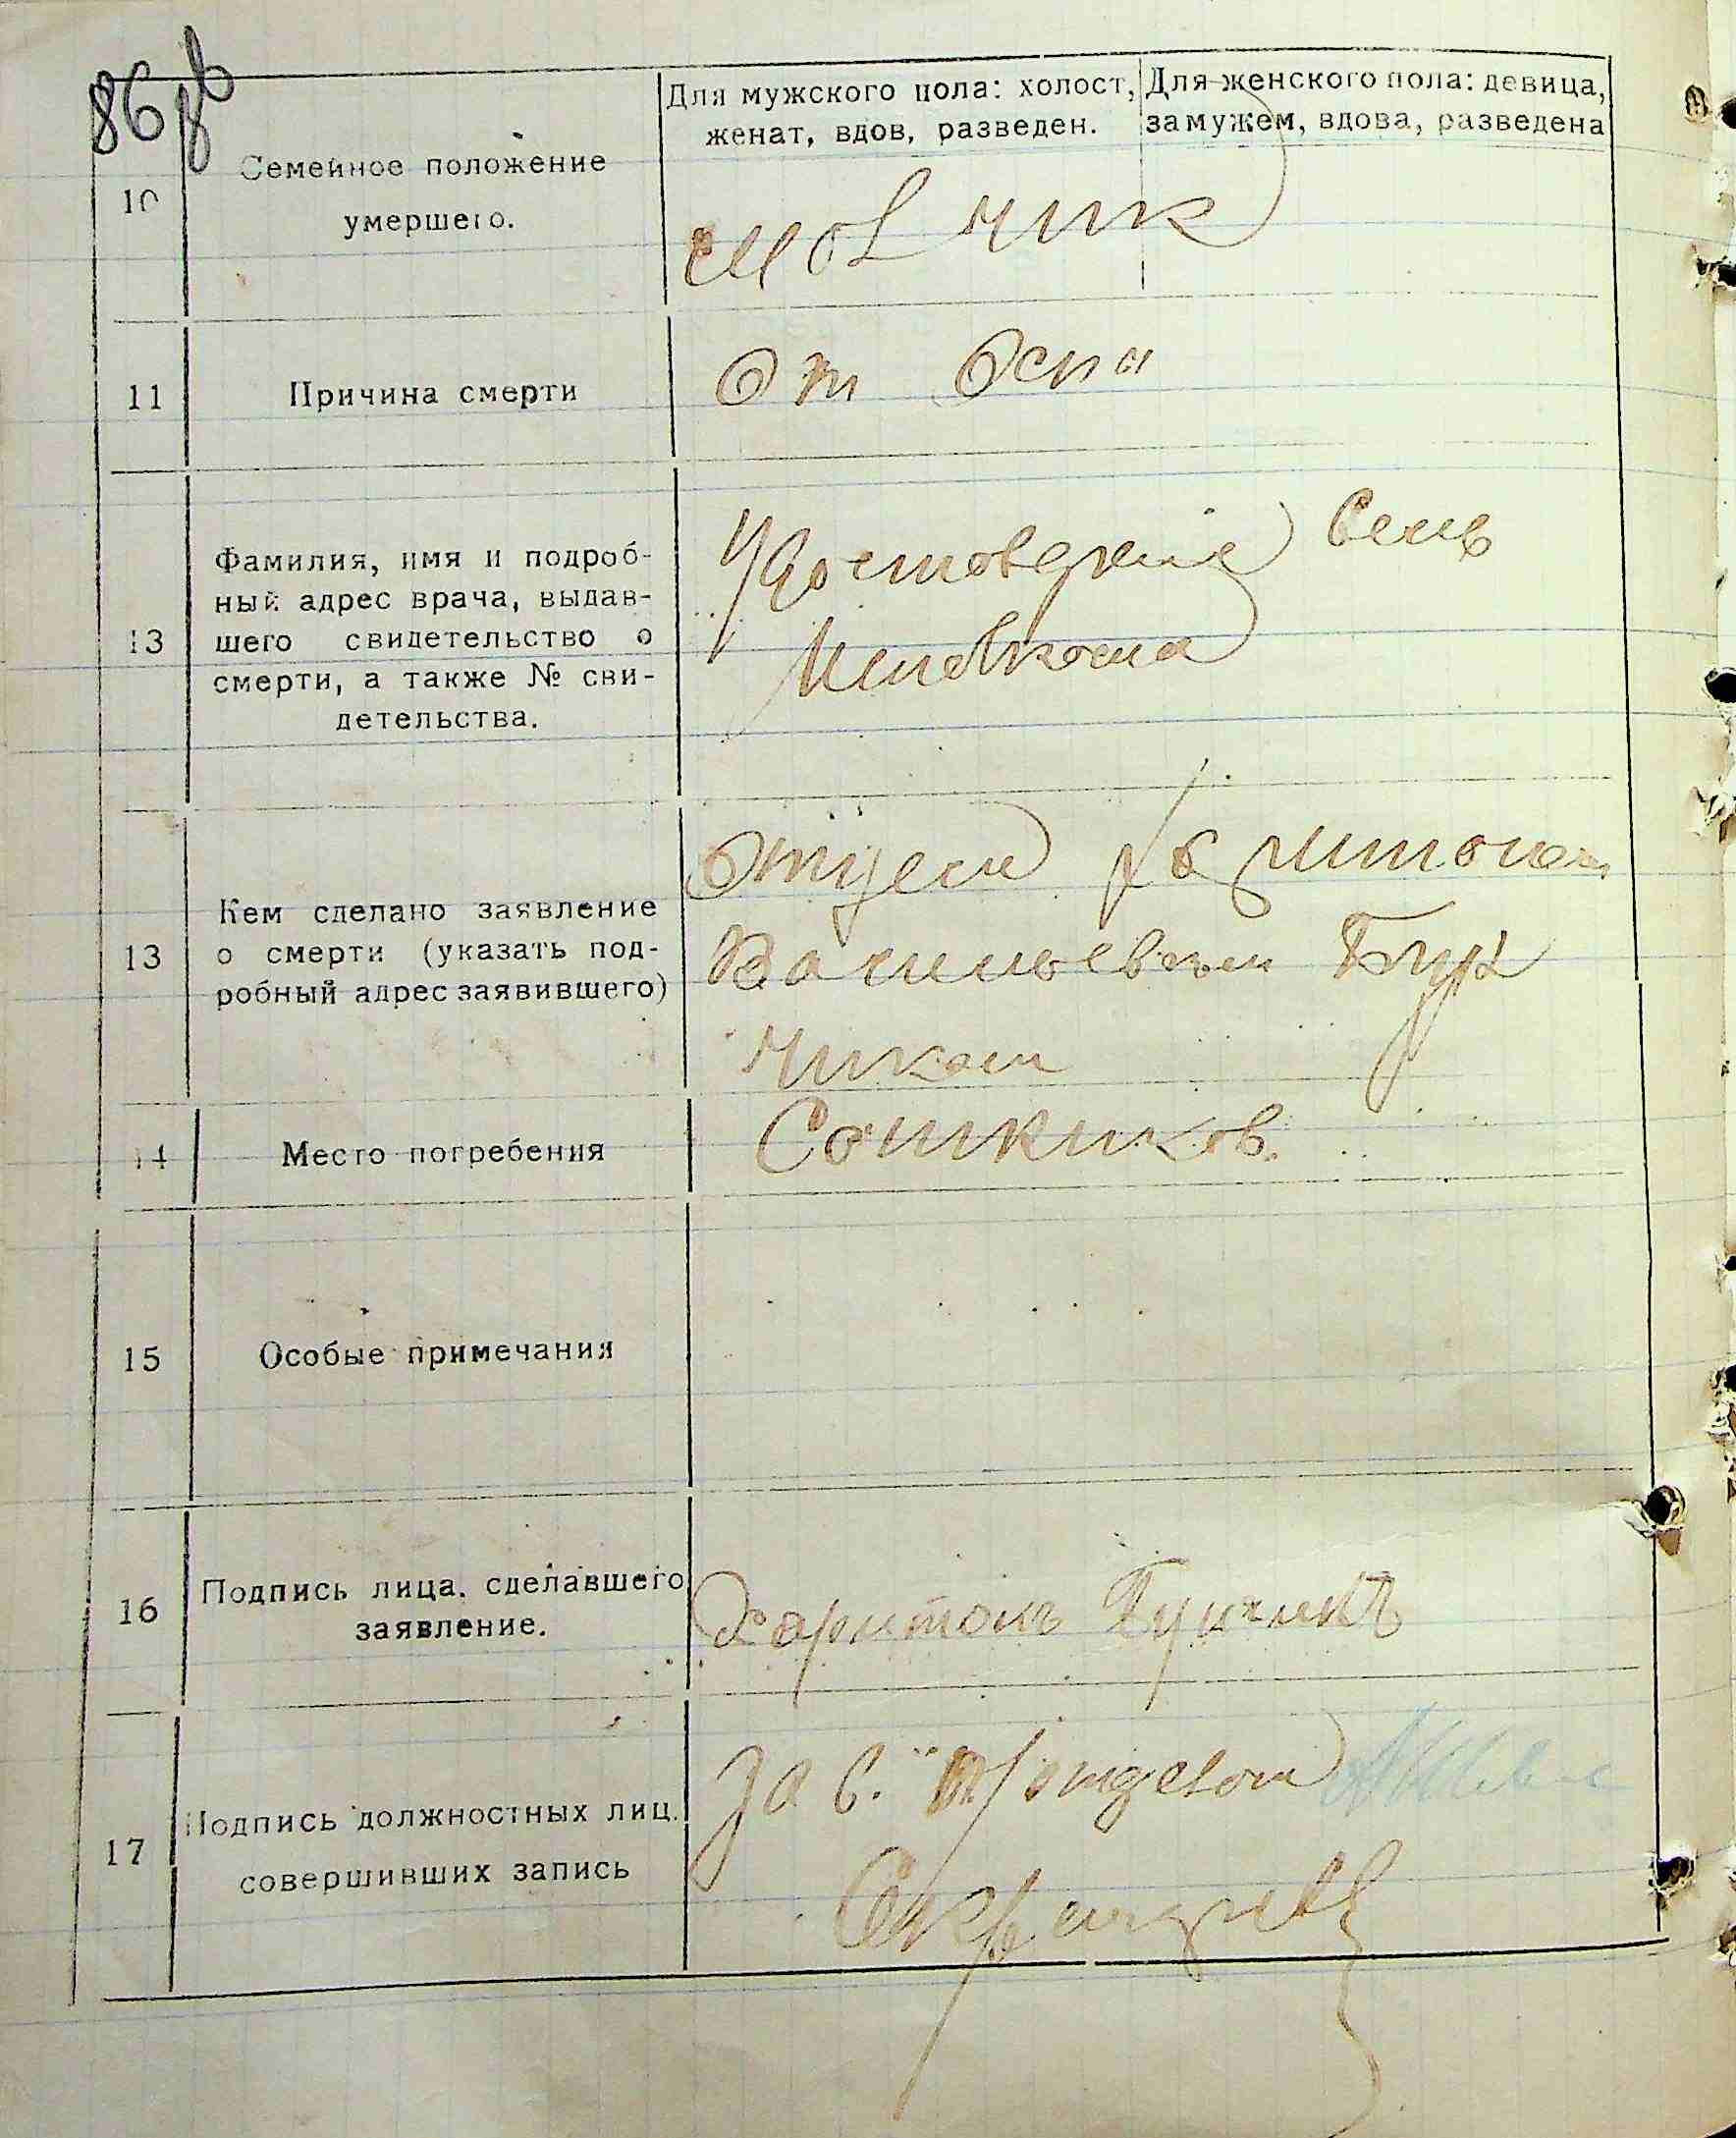 86 об
Для мужского пола: холост,
женат, вдов, разведен.
Для женского пола: девица,
замужем, вдова, разведена
10
Семейное положение
умершего.
11
Причина смерти
От Оспы
13
Фамилия, имя и подроб-
ный адрес врача, выдав-
шего свидетельство о
смерти, а также № сви-
детельства.
Исполкома
13
Кем сделано заявление
о смерти (указать под-
робный адрес заявившего)
Отцем Харитоном
Васильевем Бук
чиком
14
Место погребения
15
Особые примечания
16
Подпись лица, сделавшего
заявление.
Харитонъ Букчикъ
17
Подпись должностных лиц.
совершивших запись
За в.